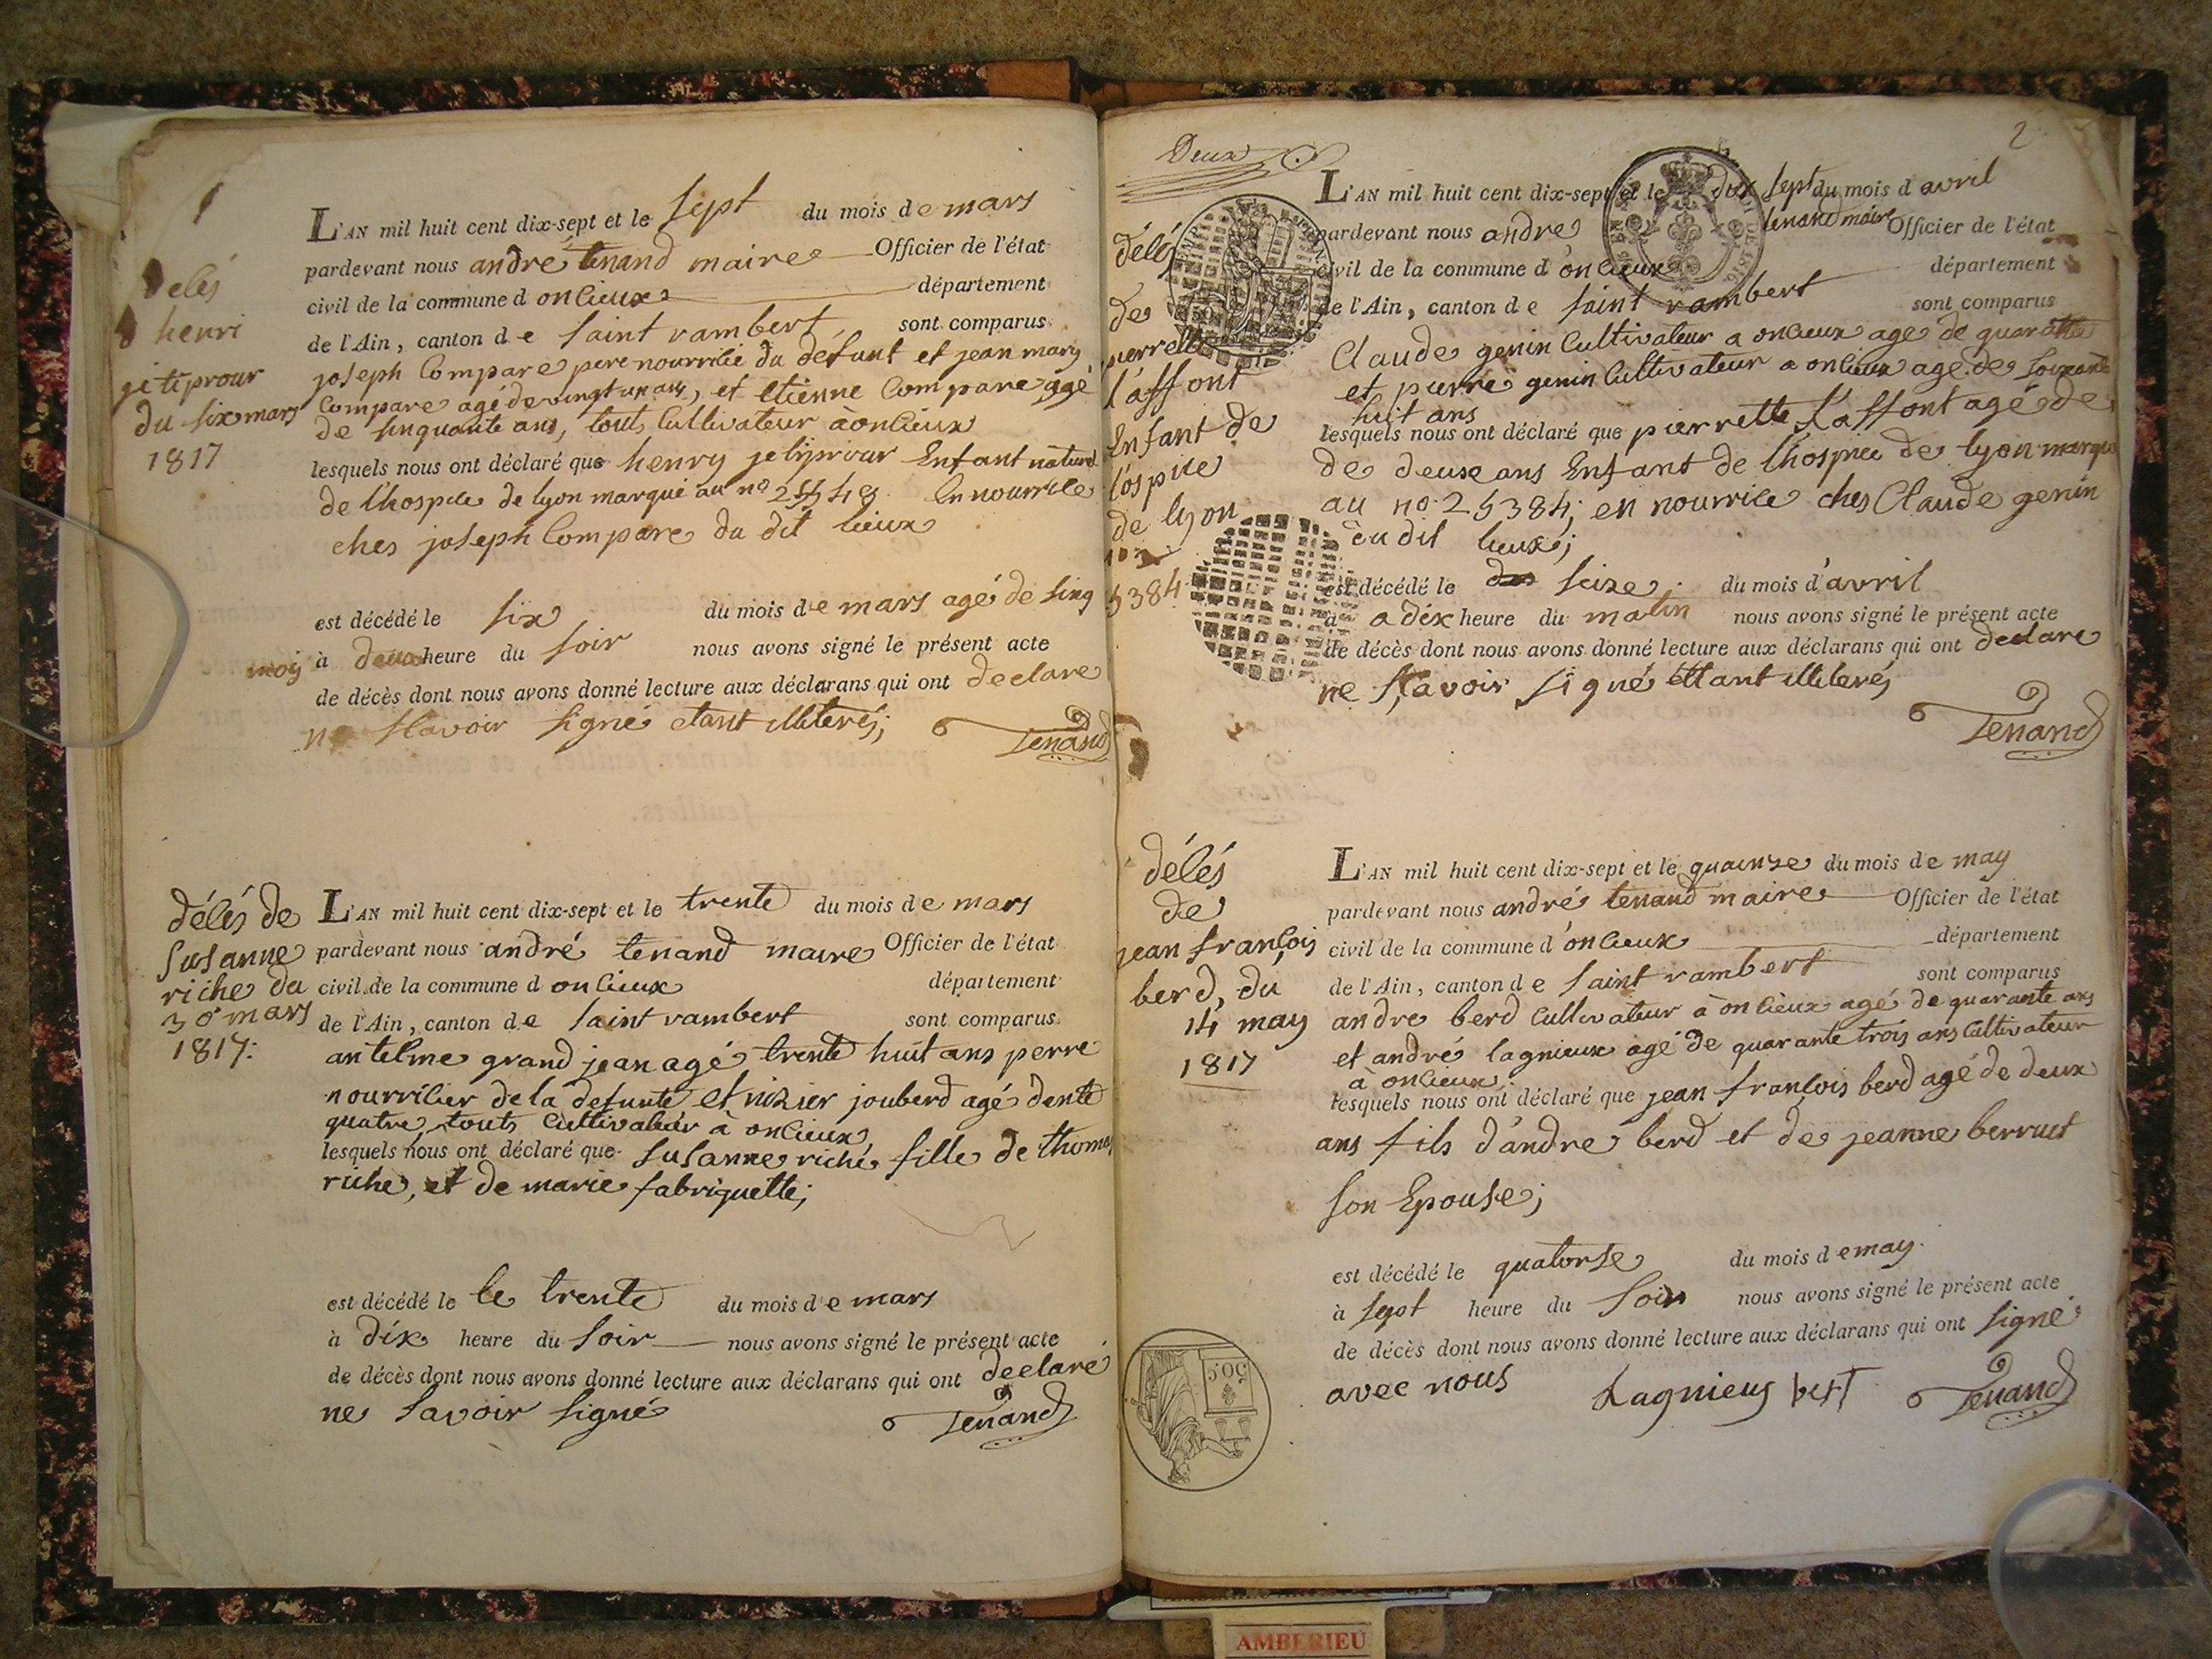 1
delés
henri
du six mars
1817
L'AN mil huit cent dix-sept et le sept du mois de mars
pardevant nous andré tenand maire Officier de l'état
civil de la commune d onlieux département
de l'Ain, canton de saint rambert sont comparus
joseph Compare pere nourricié du défunt et jean mary
Compare agé de vingt un ans, et etienne Compare agé
de sinquante ans, touts Cultivateur à onlieux
lesquels nous ont déclaré que henry Enfant naturel
de l'hospice de lyon marqué au no En nourrice
ches joseph Compare du dit lieux
est décédé le six du mois de mars agé de sinq
mois à deux heure du soir nous avons signé le présent acte
de décès dont nous avons donné lecture aux déclarans qui ont declare
ne scavoir signé etant illiterés;
Tenand
délés de
susanne
riche du
30 mars
1817:
L'AN mil huit cent dix-sept et le trente du mois de mars
pardevant nous andré tenand maire Officier de l'état
civil de la commune d onlieux département
de l'Ain, canton de saint rambert sont comparus
antelme grand jean agé trente huit ans perre
nourricier de la defunte et nizier jouberd agé
quatre, touts Cultivateur à onlieux,
lesquels nous ont déclaré que susanne riche fille de thomas
riche, et de marie fabriquette;
est décédé le le trente du mois de mars
à dix heure du soir nous avons signé le présent acte
de décès dont nous avons donné lecture aux déclarans qui ont declaré
ne savoir signé
Tenand
2
Deux
délés
de
pierrette
l'affont
Enfant de
l'ospice
de lyon
5384
L'AN mil huit cent dix-sept et le dix sept du mois d avril
pardevant nous andré tenand maire Officier de l'état
civil de la commune d'onlieux département
de l'Ain, canton de saint rambert sont comparus
Claude genin Cultivateur a onlieux age de quarante
et pierre genin Cultivateur a onlieux age de soixante
huit ans
lesquels nous ont déclaré que pierrette l'affont agé de
de deux ans Enfant de l'hospice de lyon marque
au no 25384; en nourrice ches Claude genin
du dit lieux;
est décédé le seize du mois d'avril
à a dix heure du matin nous avons signé le présent acte
de décès dont nous avons donné lecture aux déclarans qui ont declare
ne scavoir signé ettant illiterés
Tenand
délés
de
jean francois
berd, du
14 may
1817
L'AN mil huit cent dix-sept et le quainze du mois de may
pardevant nous andré tenand maire Officier de l'état
civil de la commune d'onlieux département
de l'Ain, canton de saint rambert sont comparus
andre berd Cultivateur à onlieux agé de quarante ans
et andré lagnieux agé de quarante trois ans Cultivateur
à onlieux
lesquels nous ont déclaré que jean francois berd agé de deux
ans fils d'andre berd et de jeanne berruet
son Epouse;
est décédé le quatorse du mois de may.
à sept heure du soir nous avons signé le présent acte
de décès dont nous avons donné lecture aux déclarans qui ont signé
avec nous Lagnieux bert Tenand
50 C
AMBERIEU